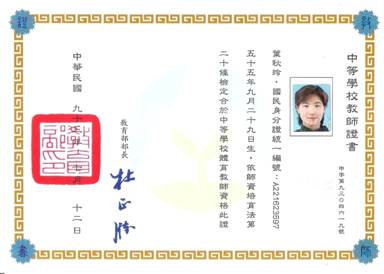 中等學校教師證書
中字第九三０四六一九號
葉秋玲，國民身分證統一編號：A221623597
五十五年九月二十九日生，依師資培育法第
二十條檢定合於中等學校體育教師資格此證
教育部部長
杜正勝
中華民國 九十三年 七月 十二日